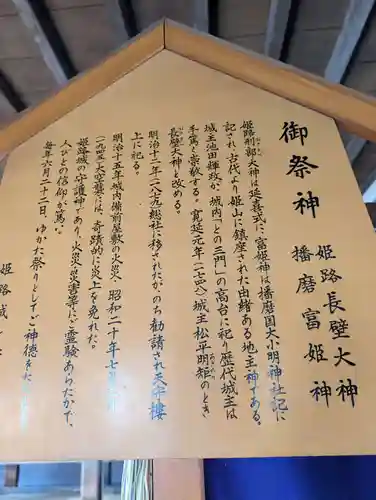 御祭神
姫路長壁大神
播磨富姫神
姫路刑部大神は延喜式に、富姫神は播磨国大小明神社記に
記され、古代より姫山に鎮座された由緒ある地主神である。
城主池田輝政が、城内「との三門」の高台に祀り、歴代城主は
手篤く崇敬する。寛延元年(一七四八)城主松平明矩のとき
長壁大神と改める。
明治十二年(一八七九)総社に移されたが、のち勧請され天守楼
上に祀る。
明治十五年城内備前屋敷の火災、昭和二十年七月
(一九四五)大空襲には、奇蹟的に炎上を免れた。
姫路城の守護神であり、火災、災害等にご霊験あらたかで、
人びとの信仰が篤い。
毎年六月二十二日、ゆかた祭りとしてご神徳をた
姫路城